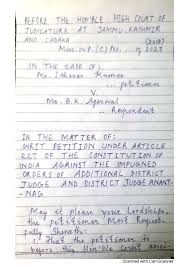 BEFORE THE HON'BLE HIGH COURT OF
JUDICATURE AT JAMMU, KASHMIR
AND LADAKH
Misc. W.P. (C) No. of 2023
IN THE CASE OF:
Ms. Kumar
... petitioner
V
Mr. B.K. Agarwal
... Respondent
IN THE MATTER OF:
WRIT PETITION UNDER ARTICLE
227 OF THE CONSTITUTION OF
INDIA AGAINST THE IMPUGNED
ORDERS OF ADDITIONAL DISTRICT
JUDGE AND DISTRICT JUDGE ANANT-
NAG
May it please your Lordships,
the petitioner Most Respect-
fully Sheweth:
1. That the petitioner is
before this Hon'ble Court
Scanned with CamScanner